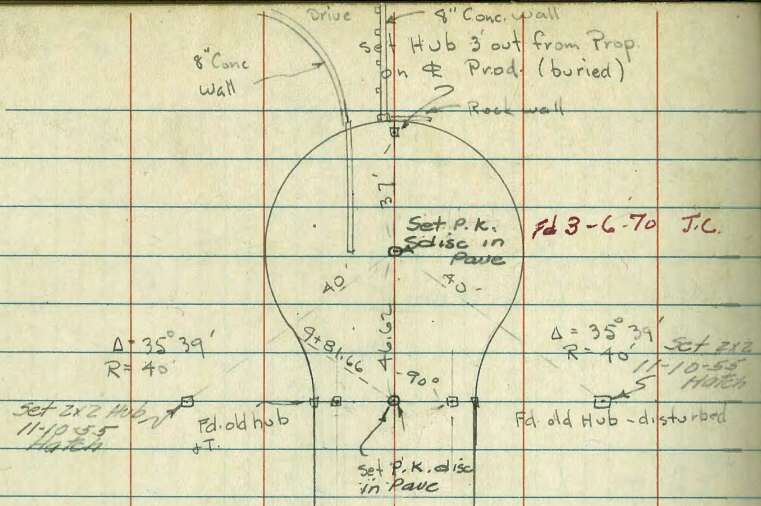 Drive
8" Conc. wall
8" Conc
Wall
Set Hub 3' out from Prop.
on ℄ Prod. (buried)
Rock wall
37'
Set P.K.
& disc in
Pave
Fd 3-6-70 J.C.
40'
40'
46.62
9+81.66
90°
Δ = 35° 39'
R = 40'
Δ = 35° 39'
R = 40'
Set 2x2
11-10-55
Hatch
Set 2x2 Hub
11-10-55
Hatch
Fd. old hub
& T.
Fd. old Hub - disturbed
Set P.K. disc
in Pave